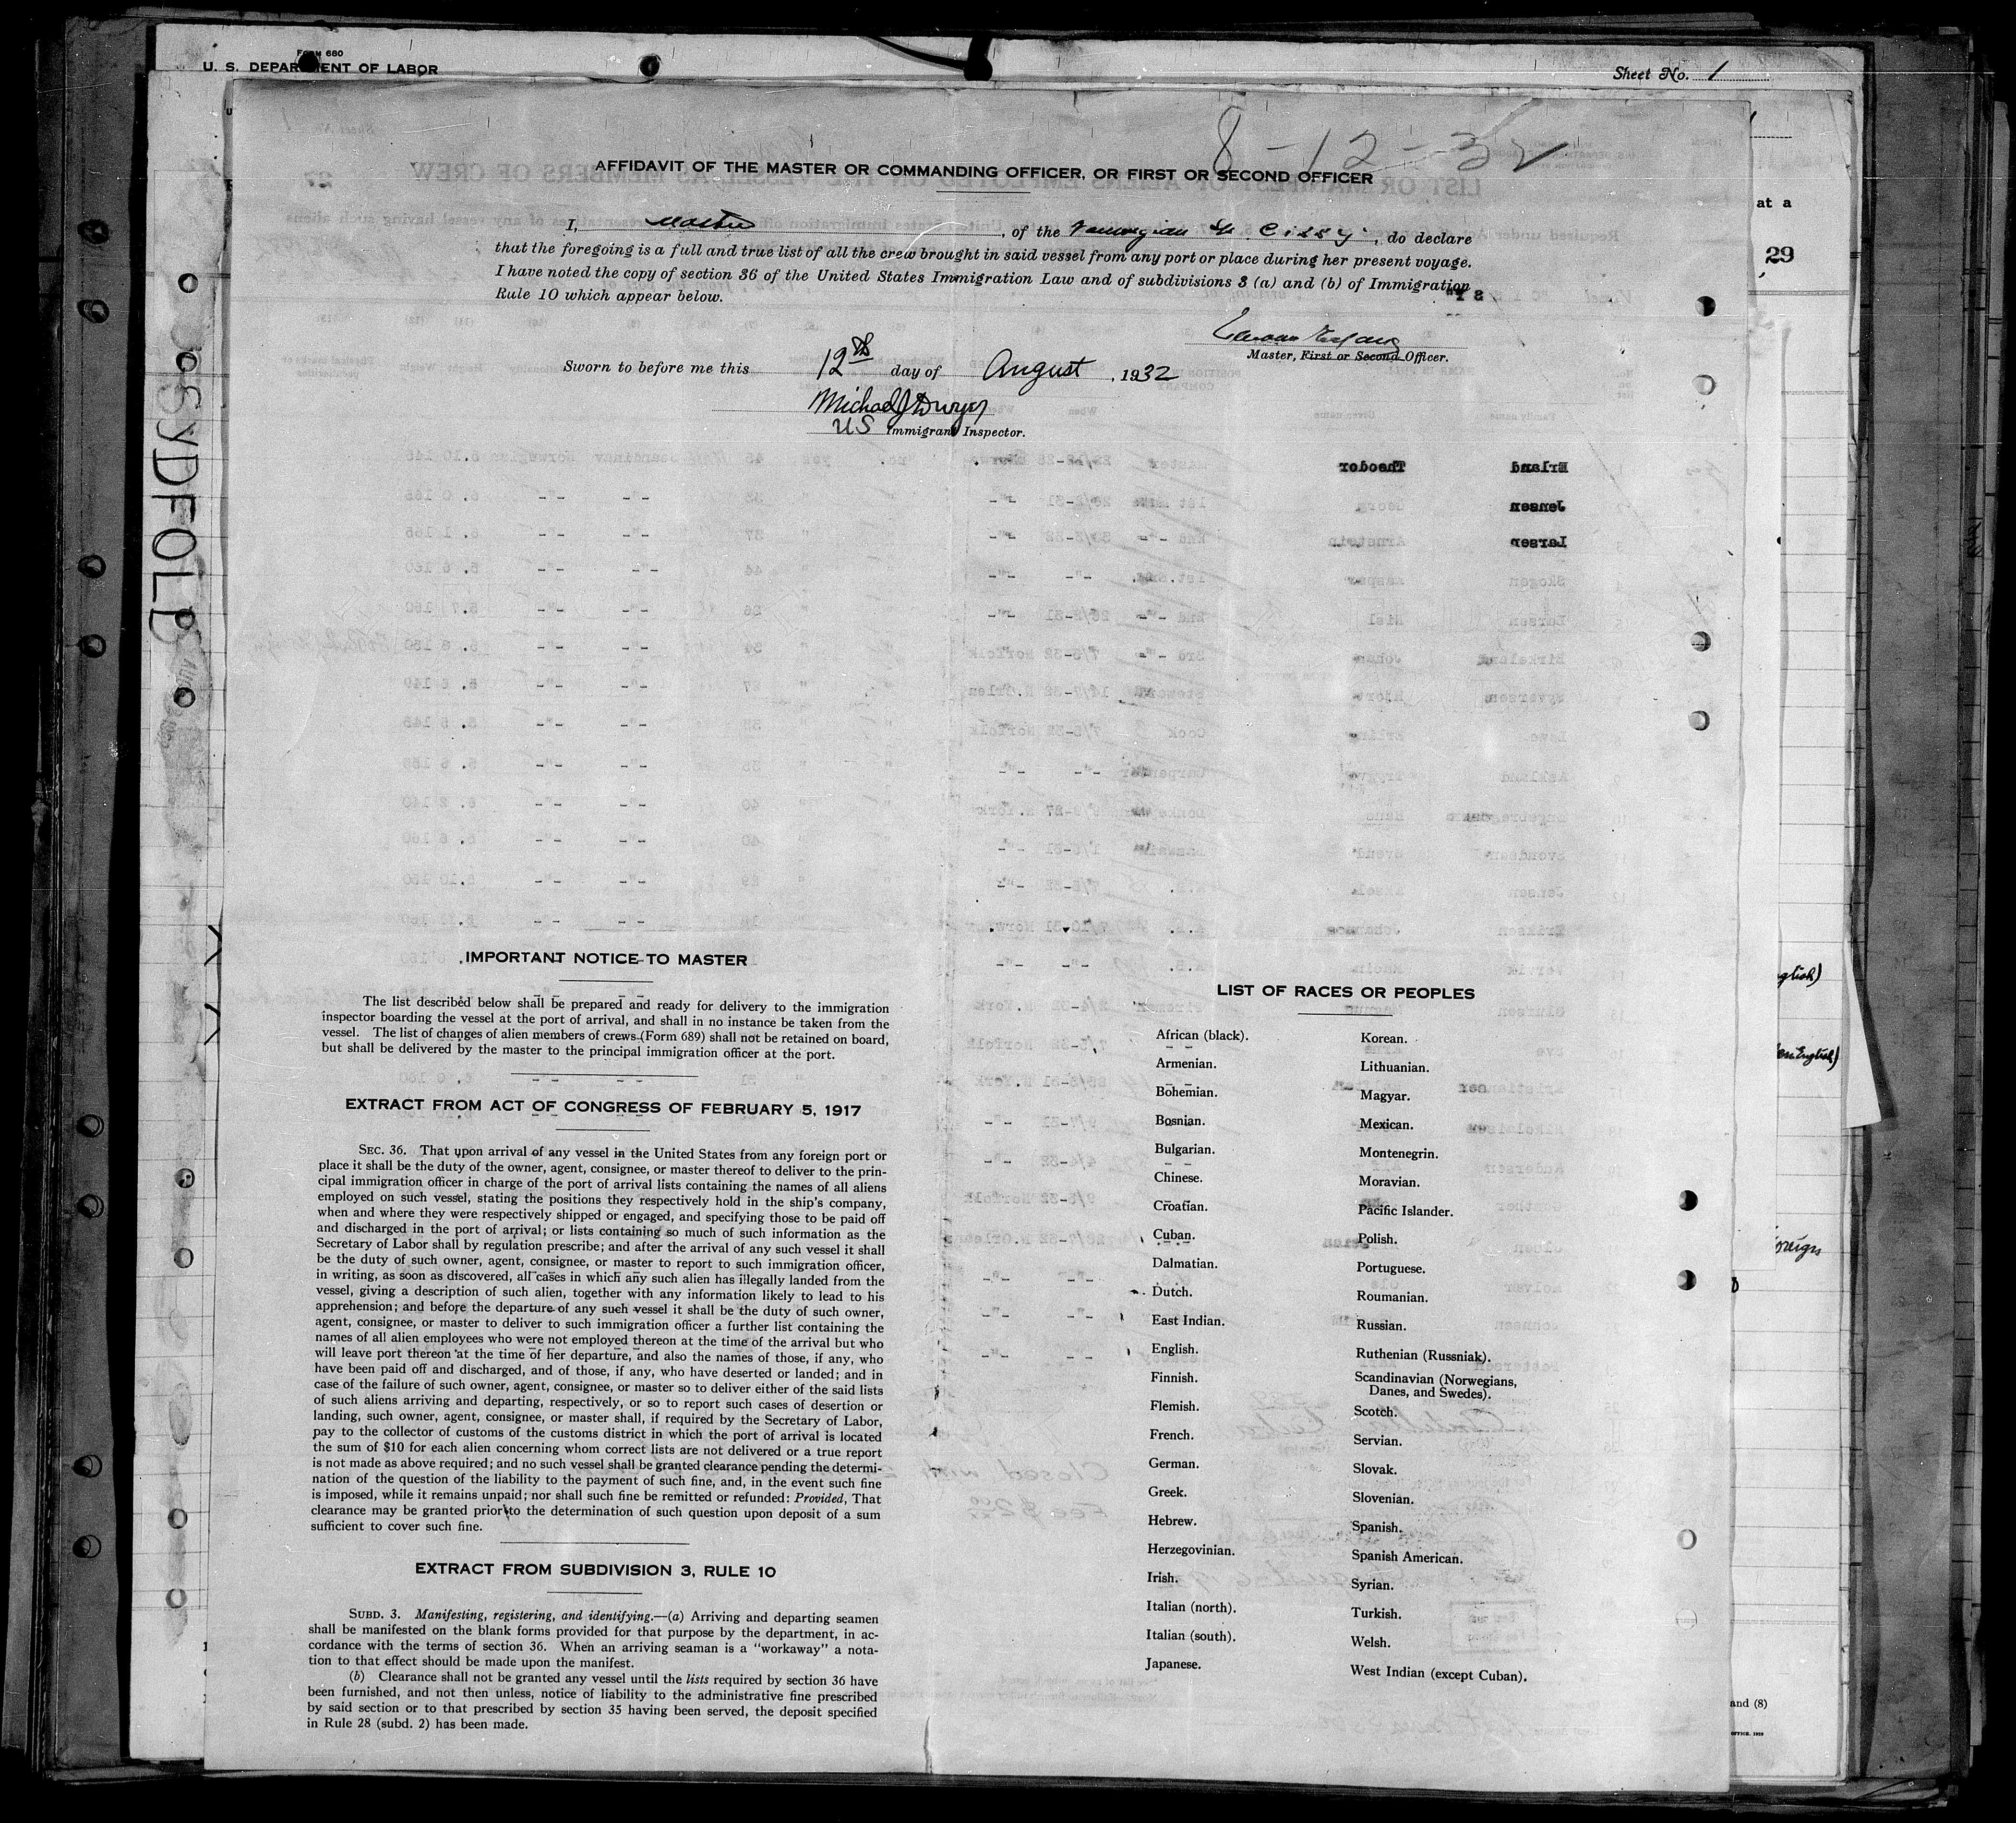 FORM 680
U. S. DEPARTMENT OF LABOR
Sheet No. 1
8-12-32
AFFIDAVIT OF THE MASTER OR COMMANDING OFFICER, OR FIRST OR SECOND OFFICER
I, Master, of the Norwegian S/S Cissy, do declare
that the foregoing is a full and true list of all the crew brought in said vessel from any port or place during her present voyage.
I have noted the copy of section 36 of the United States Immigration Law and of subdivisions 3 (a) and (b) of Immigration
Rule 10 which appear below.
Master, First or Second Officer.
Sworn to before me this 12th day of August, 1932
Michael J Dwyer
US Immigrant Inspector.
at a
29
SYDFOLD
IMPORTANT NOTICE TO MASTER
The list described below shall be prepared and ready for delivery to the immigration
inspector boarding the vessel at the port of arrival, and shall in no instance be taken from the
vessel. The list of changes of alien members of crews (Form 689) shall not be retained on board,
but shall be delivered by the master to the principal immigration officer at the port.
EXTRACT FROM ACT OF CONGRESS OF FEBRUARY 5, 1917
SEC. 36. That upon arrival of any vessel in the United States from any foreign port or
place it shall be the duty of the owner, agent, consignee, or master thereof to deliver to the prin-
cipal immigration officer in charge of the port of arrival lists containing the names of all aliens
employed on such vessel, stating the positions they respectively hold in the ship's company,
when and where they were respectively shipped or engaged, and specifying those to be paid off
and discharged in the port of arrival; or lists containing so much of such information as the
Secretary of Labor shall by regulation prescribe; and after the arrival of any such vessel it shall
be the duty of such owner, agent, consignee, or master to report to such immigration officer,
in writing, as soon as discovered, all cases in which any such alien has illegally landed from the
vessel, giving a description of such alien, together with any information likely to lead to his
apprehension; and before the departure of any such vessel it shall be the duty of such owner,
agent, consignee, or master to deliver to such immigration officer a further list containing the
names of all alien employees who were not employed thereon at the time of the arrival but who
will leave port thereon at the time of her departure, and also the names of those, if any, who
have been paid off and discharged, and of those, if any, who have deserted or landed; and in
case of the failure of such owner, agent, consignee, or master so to deliver either of the said lists
of such aliens arriving and departing, respectively, or so to report such cases of desertion or
landing, such owner, agent, consignee, or master shall, if required by the Secretary of Labor,
pay to the collector of customs of the customs district in which the port of arrival is located
the sum of $10 for each alien concerning whom correct lists are not delivered or a true report
is not made as above required; and no such vessel shall be granted clearance pending the determi-
nation of the question of the liability to the payment of such fine, and, in the event such fine
is imposed, while it remains unpaid; nor shall such fine be remitted or refunded: Provided, That
clearance may be granted prior to the determination of such question upon deposit of a sum
sufficient to cover such fine.
EXTRACT FROM SUBDIVISION 3, RULE 10
SUBD. 3. Manifesting, registering, and identifying.—(a) Arriving and departing seamen
shall be manifested on the blank forms provided for that purpose by the department, in ac-
cordance with the terms of section 36. When an arriving seaman is a "workaway" a nota-
tion to that effect should be made upon the manifest.
(b) Clearance shall not be granted any vessel until the lists required by section 36 have
been furnished, and not then unless, notice of liability to the administrative fine prescribed
by said section or to that prescribed by section 35 having been served, the deposit specified
in Rule 28 (subd. 2) has been made.
LIST OF RACES OR PEOPLES
African (black).
Armenian.
Bohemian.
Bosnian.
Bulgarian.
Chinese.
Croatian.
Cuban.
Dalmatian.
Dutch.
East Indian.
English.
Finnish.
Flemish.
French.
German.
Greek.
Hebrew.
Herzegovinian.
Irish.
Italian (north).
Italian (south).
Japanese.
Korean.
Lithuanian.
Magyar.
Mexican.
Montenegrin.
Moravian.
Pacific Islander.
Polish.
Portuguese.
Roumanian.
Russian.
Ruthenian (Russniak).
Scandinavian (Norwegians,
Danes, and Swedes).
Scotch.
Servian.
Slovak.
Slovenian.
Spanish.
Spanish American.
Syrian.
Turkish.
Welsh.
West Indian (except Cuban).
and (8)